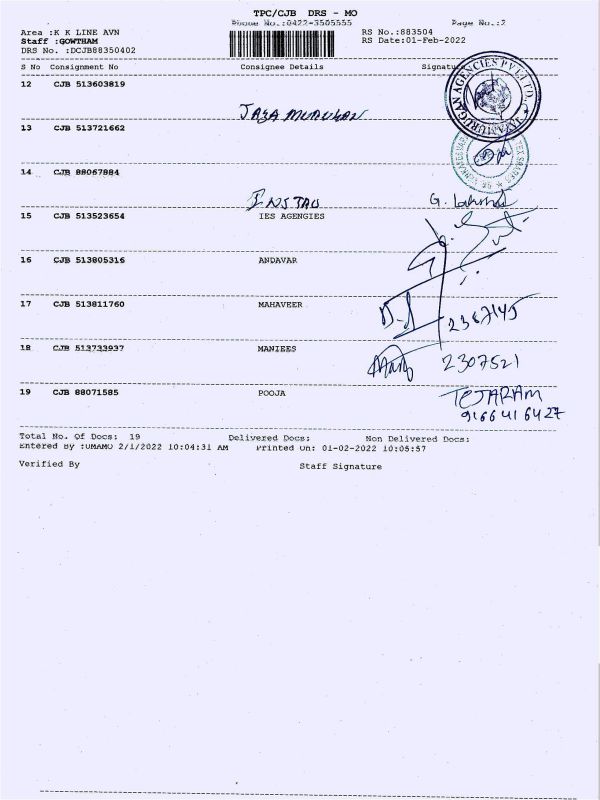 TPC/CJB DRS - MO
Phone No.:0422-3505555 Page No.:2
Area :K K LINE AVN RS No.:883504
Staff :GOWTHAM RS Date:01-Feb-2022
DRS No. :DCJB88350402
S No Consignment No Consignee Details Signatu
12 CJB 513603819
JAYA MURUGAN
JAYAMURUGAN AGENCIES PVT LTD.
13 CJB 513721662
14 CJB 88067884
G. Lakshmi
15 CJB 513523654 IES AGENGIES
16 CJB 513805316 ANDAVAR
17 CJB 513811760 MAHAVEER
2367145
18 CJB 513733937 MANIEES
2307521
19 CJB 88071585 POOJA
TEJARAM
9166416427
Total No. Of Docs: 19 Delivered Docs: Non Delivered Docs:
Entered By :UMAMO 2/1/2022 10:04:31 AM Printed On: 01-02-2022 10:05:57
Verified By Staff Signature